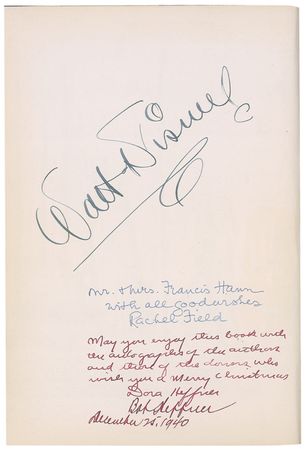 Walt Disney
Mr. & Mrs. Francis Hann
with all good wishes
Rachel Field
May you enjoy this book with
the autographs of the authors
and then of the donors who
wish you a Merry Christmas
Dora Heffner
Bob Heffner
December 25, 1940